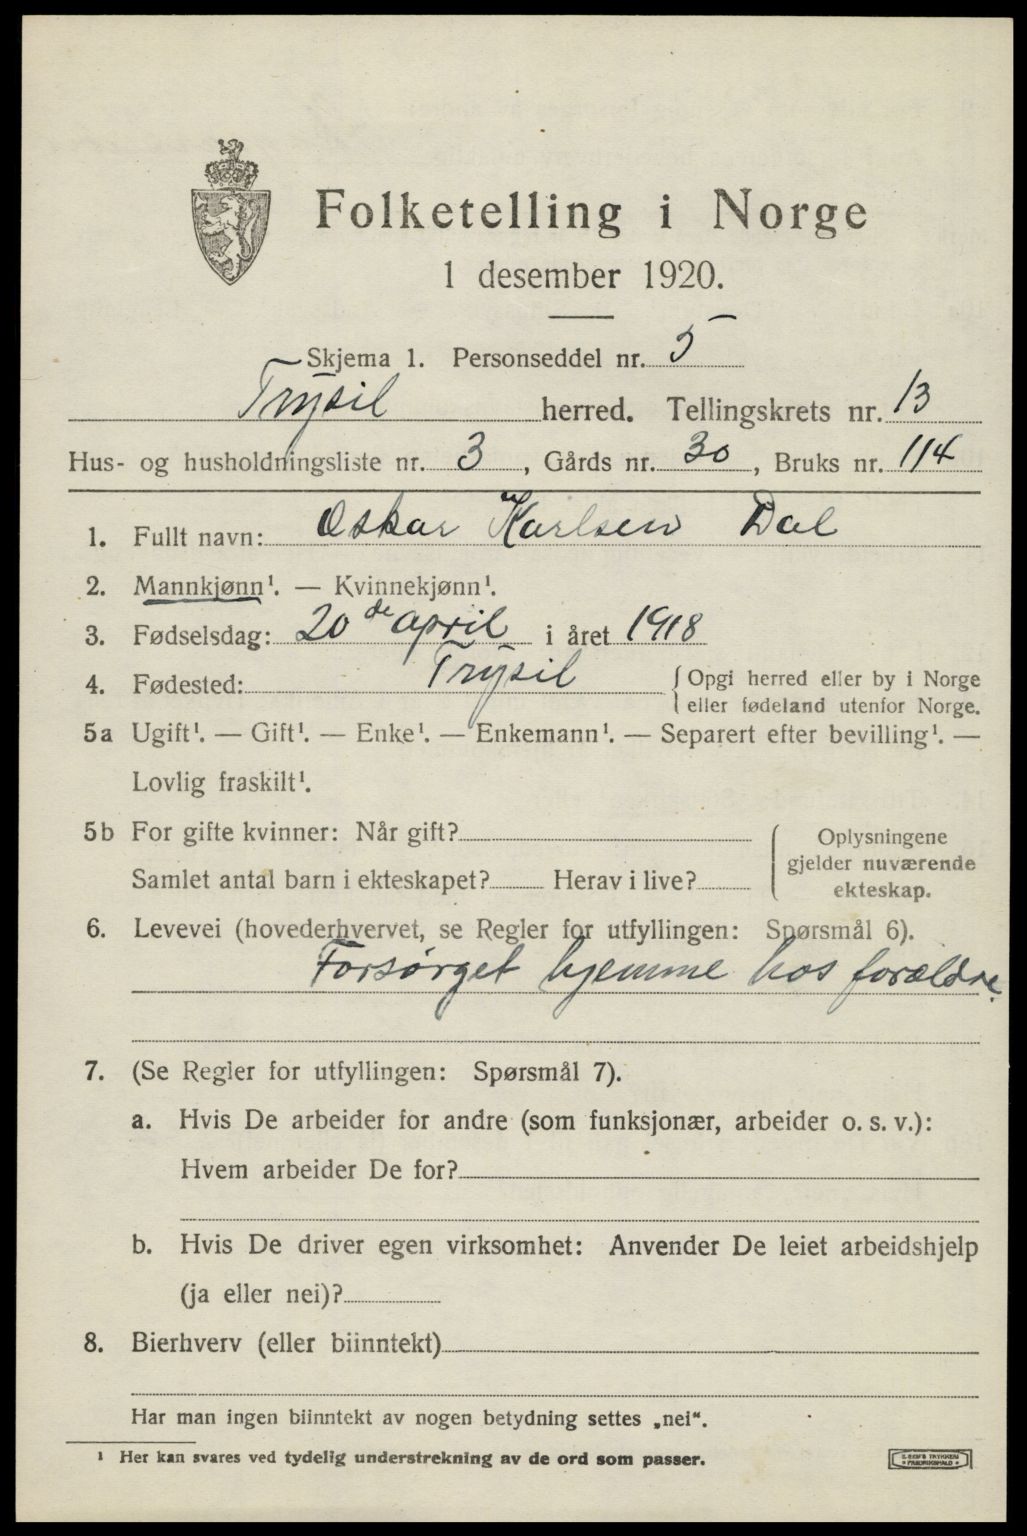 Folketelling i Norge
1 desember 1920.
Skjema 1. Personseddel nr. 5
Trysil herred. Tellingskrets nr. 13
Hus- og husholdningsliste nr. 3, Gårds nr. 30, Bruks nr. 114
1. Fullt navn: Oskar Karlsen Dal
2. Mannkjønn¹. — Kvinnekjønn¹.
3. Fødselsdag: 20de april i året 1918
4. Fødested: Trysil { Opgi herred eller by i Norge
eller fødeland utenfor Norge.
5a Ugift¹. — Gift¹. — Enke¹. — Enkemann¹. — Separert efter bevilling¹. —
Lovlig fraskilt¹.
5b For gifte kvinner: Når gift?
Samlet antal barn i ekteskapet? Herav i live?
{ Oplysningene
gjelder nuværende
ekteskap.
6. Levevei (hovederhvervet, se Regler for utfyllingen: Spørsmål 6).
Forsørget hjemme hos forældre.
7. (Se Regler for utfyllingen: Spørsmål 7).
a. Hvis De arbeider for andre (som funksjonær, arbeider o. s. v.):
Hvem arbeider De for?
b. Hvis De driver egen virksomhet: Anvender De leiet arbeidshjelp
(ja eller nei)?
8. Bierhverv (eller biinntekt)
Har man ingen biinntekt av nogen betydning settes „nei“.
¹ Her kan svares ved tydelig understrekning av de ord som passer.